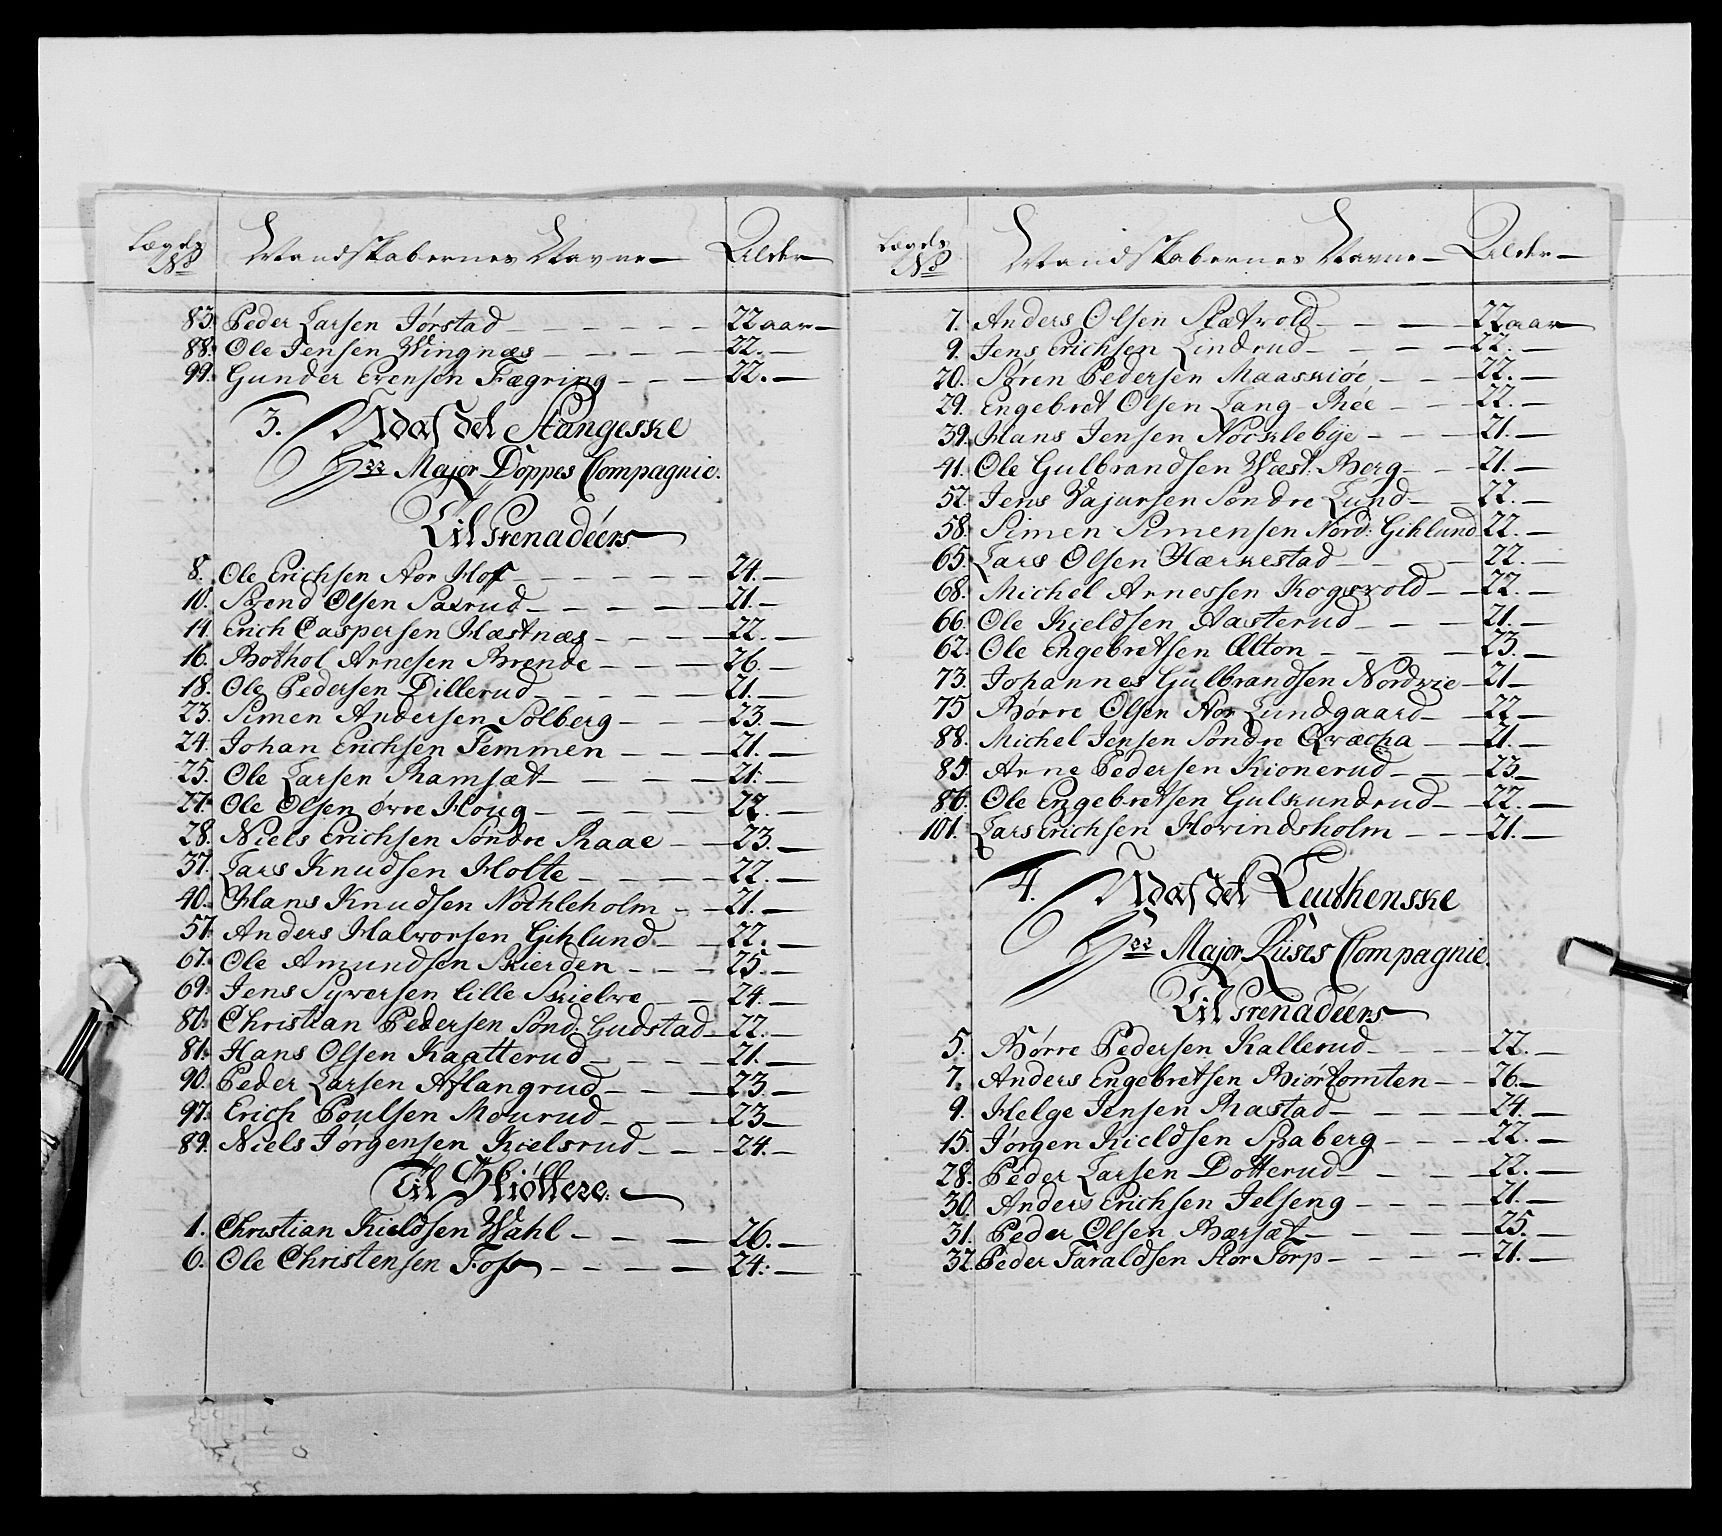 Lægds No Mandskabernes Navne Alder
83. Peder Larsen Jørstad 22 aar
88. Ole Jensen Wingnæs 22.
99. Gunder Evensen Fægring 22.
3. Udaf det Stangeske
Hrr Major Doppes Compagnie.
Til Grenadéers
8. Ole Erichsen Nor Hof 24.
10. Svend Olsen Saxrud 21.
14. Erich Caspersen Hæstnæs 22.
16. Bothol Arnesen Brende 26.
18. Ole Pedersen Dillerud 21.
23. Simen Andersen Solberg 23.
24. Johan Erichsen Temmen 21.
25. Ole Larsen Ramsæt 21.
27. Ole Olsen øvre Houg 22.
28. Niels Erichsen Søndre Raae 23.
37. Lars Knudsen Holte 22.
40. Hans Knudsen Nochleholm 21.
57. Anders Halvorsen Gihlund 22.
67. Ole Amundsen Skierden 25.
69. Jens Syversen lille Skielve 24.
80. Christian Pedersen Sønd: Gudstad 22.
81. Hans Olsen Kaatterud 21.
90. Peder Larsen Aslangrud 23.
97. Erich Poulsen Mourud 23
89. Niels Jørgensen Kielsrud 24.
Til Skiøttere
1. Christian Kieldsen Wahl 26.
6. Ole Christensen Foss 24.
Lægds No Mandskabernes Navne Alder
7. Anders Olsen Sætvold 22 aar
9. Jens Erichsen Lindrud 22.
20. Søren Pedersen Maaskiøe 22.
29. Engebret Olsen Lang-Rée 22.
39. Hans Jensen Nocklebye 21.
41. Ole Gulbrandsen Wæst: Berg 21.
52. Jens Vajursen Søndre Lund 22.
58. Simen Simensen Nord: Gihlund 22.
65. Lars Olsen Hærkestad 22.
68. Michel Arnessen Kogsvold 22.
66. Ole Kieldsen Aasterud 21.
62. Ole Engebretsen Ælton 23.
73. Johannes Gulbrandsen Nordvie 21
75 Børre Olsen Nor Lundgaard 22
88. Michel Jensen Søndre Qvæcha 21.
85. Arne Pedersen Kionerud 23
86. Ole Engebretsen Gulkundrud 22.
101. Lars Erichsen Hovindsholm 21.
4. Udaf det Leuthenske
Hrr Major Rüses Compagnie.
Til Grenadéers
5. Børre Pedersen Kallerud 22.
7. Anders Engebretsen Biørtomten 26.
9. Helge Jensen Rastad 24.
15. Jørgen Kieldsen Spaberg 22.
28. Peder Larsen Dotterud 22.
30. Anders Erichsen Jelseng 21.
31. Peder Olsen Bærsæt 25.
32. Peder Taraldsen Stor Torp 21.